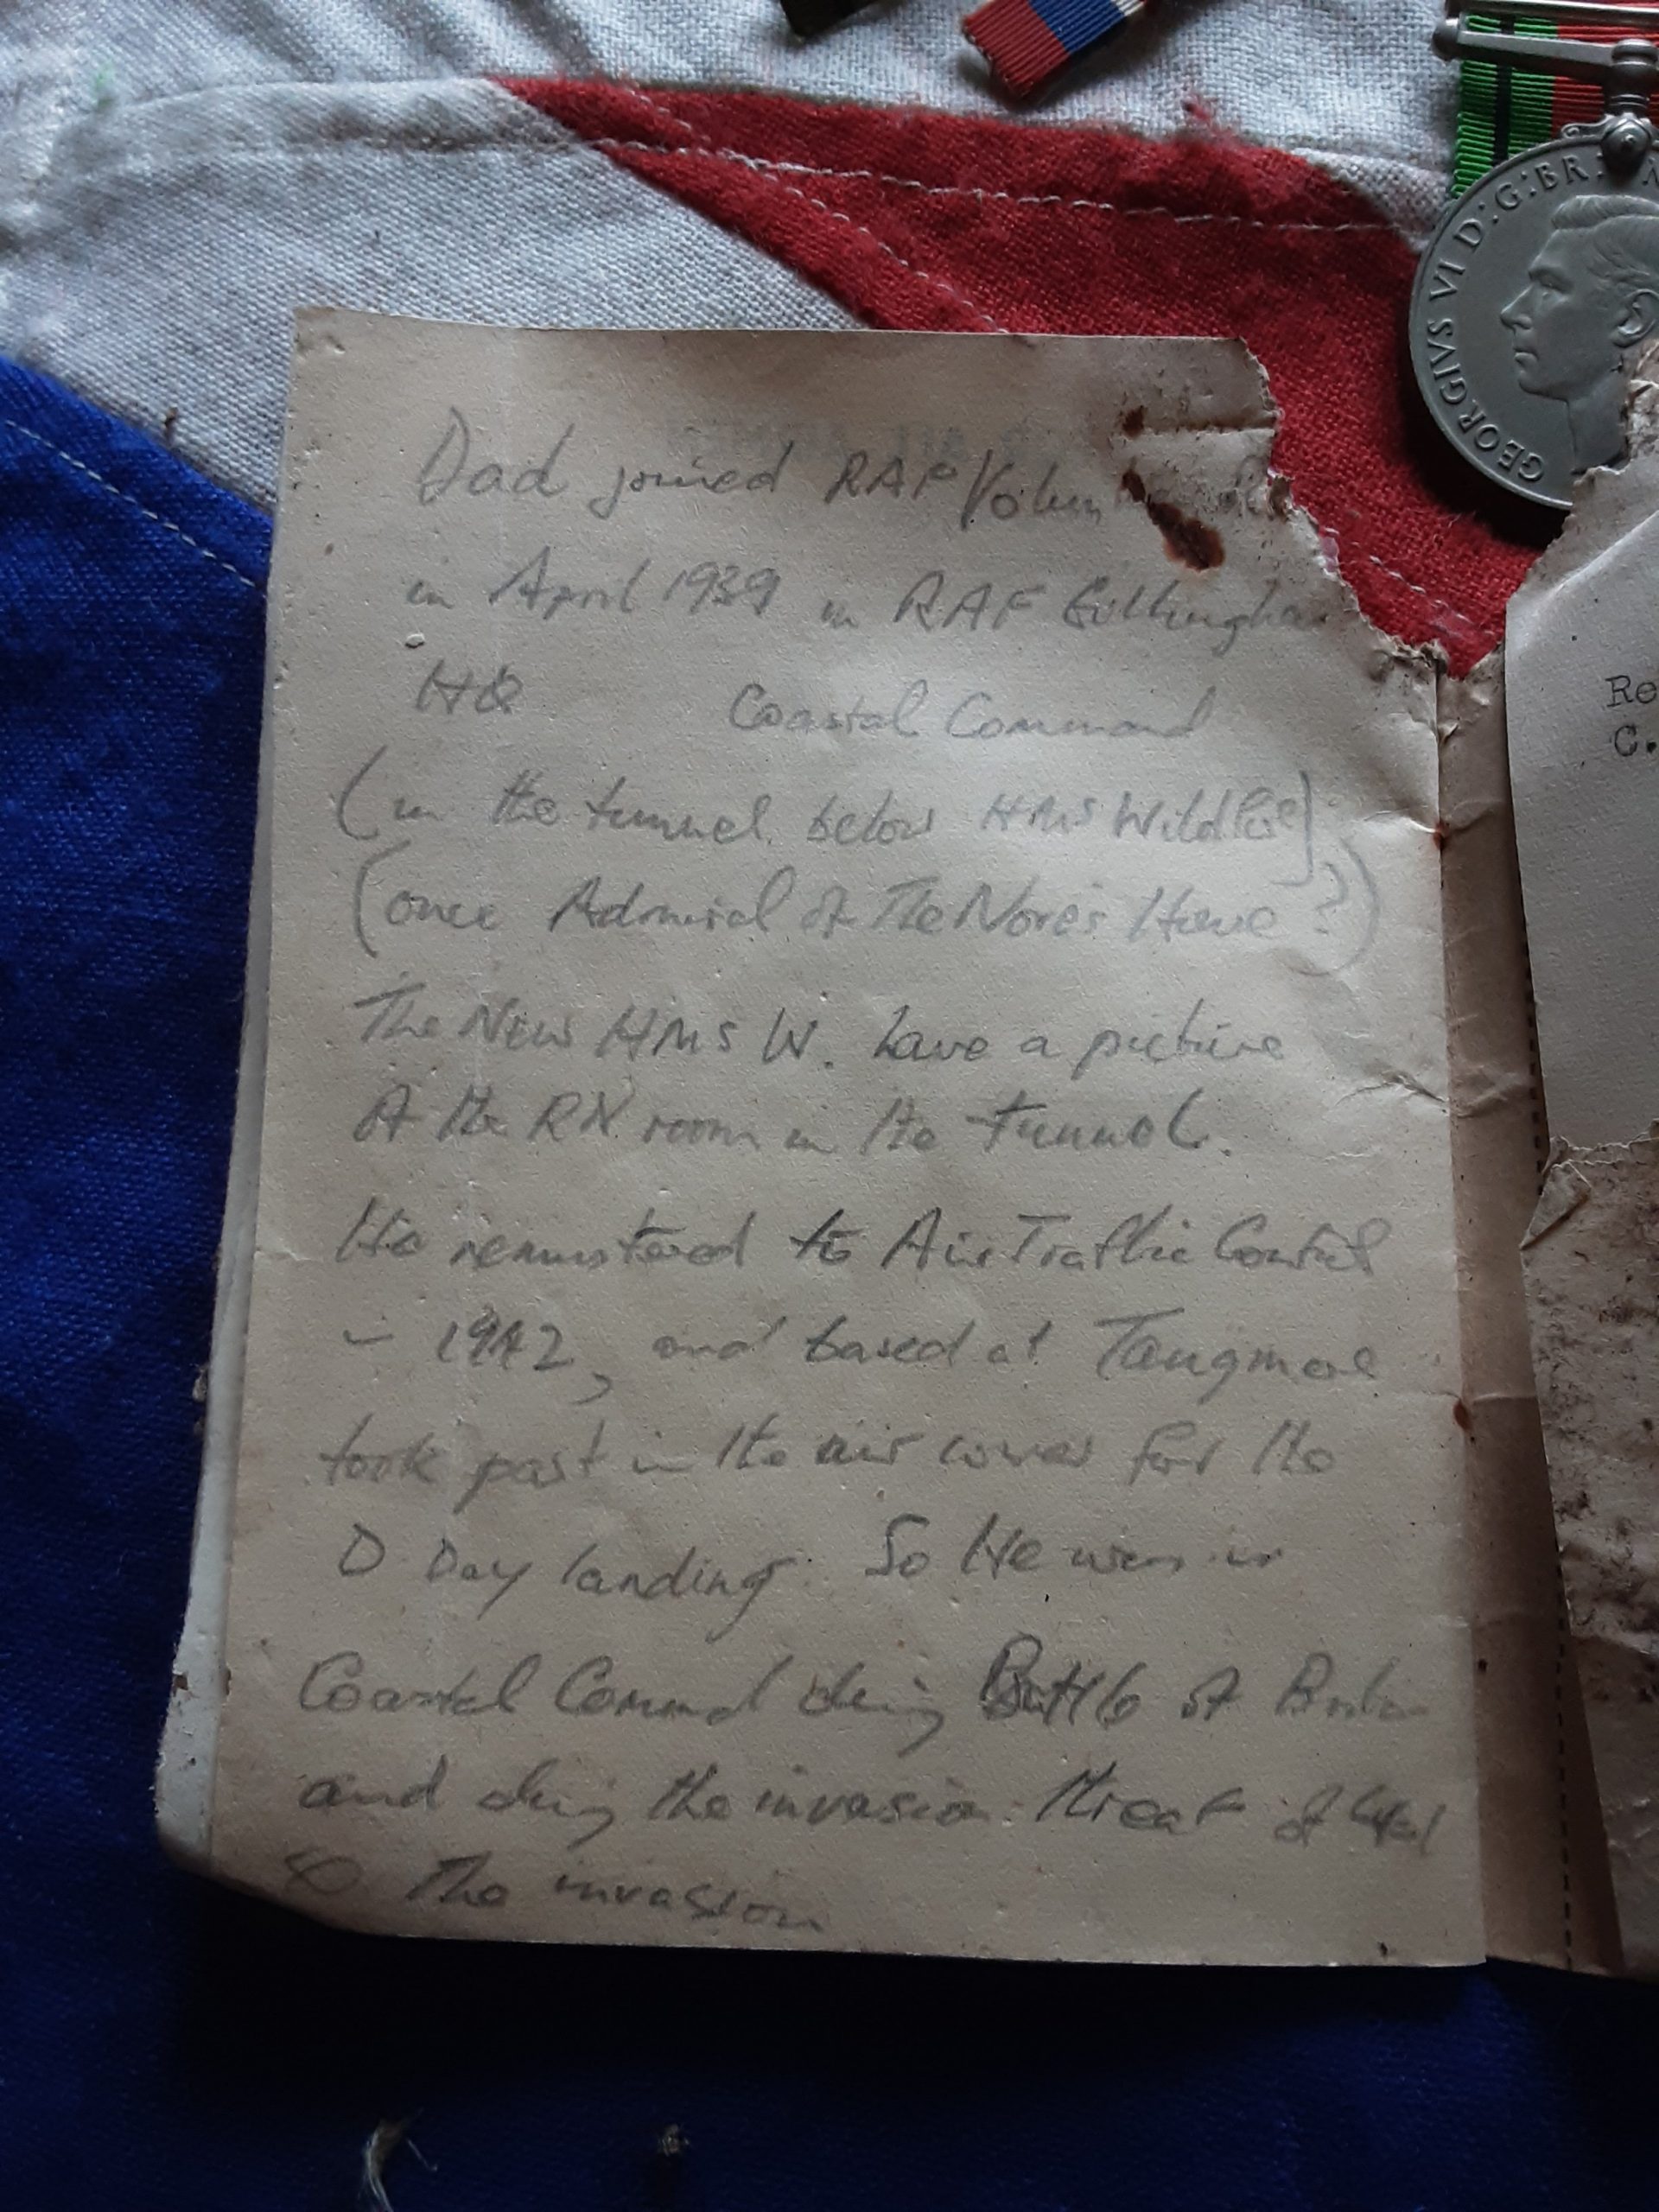 GEORGIVS VI D:G:BR:
Dad joined RAF Volun
in April 1939 in RAF Gillingha
HQ Coastal Command
(in the tunnel below HMS Wildfire)
(once Admiral of The Nore's House?)
The New HMS W. have a picture
of the RN room in the tunnel.
He remustered to Air Traffic Control
- 1942, and based at Tangmere
took part in the air cover for the
D Day landing. So He was in
Coastal Command during Battle of Britain
and during the invasion threat of
& The invasion
Re
C.